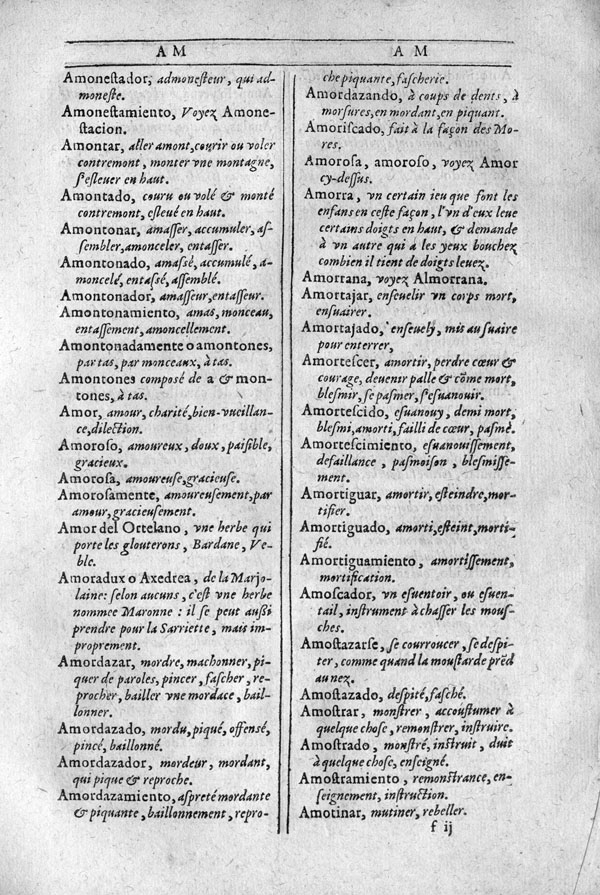 A M
Amonestador, admonesteur, qui ad-
moneste.
Amonestamiento, Voyez Amone-
stacion.
Amontar, aller amont, courir ou voler
contremont, monter vne montagne,
s'esleuer en haut.
Amontado, couru ou volé & monté
contremont, esleué en haut.
Amontonar, amasser, accumuler, as-
sembler, amonceler, entasser.
Amontonado, amassé, accumulé, a-
moncelé, entassé, assemblé.
Amontonador, amasseur, entasseur.
Amontonamiento, amas, monceau,
entassement, amoncellement.
Amontonadamente o amontones,
par tas, par monceaux, à tas.
Amontones composé de a & mon-
tones, à tas.
Amor, amour, charité, bien-vueillan-
ce, dilection.
Amoroso, amoureux, doux, paisible,
gracieux.
Amorosa, amoureuse, gracieuse.
Amorosamente, amoureusement, par
amour, gracieusement.
Amor del Ortelano, vne herbe qui
porte les glouterons, Bardane, Ye-
ble.
Amoradux o Axedrea, de la Marjo-
laine: selon aucuns, c'est vne herbe
nommee Maronne : il se peut außi
prendre pour la Sarriette, mais im-
proprement.
Amordazar, mordre, machonner, pi-
quer de paroles, pincer, fascher, re-
procher, bailler vne mordace, bail-
lonner.
Amordazado, mordu, piqué, offensé,
pincé, baillonné.
Amordazador, mordeur, mordant,
qui pique & reproche.
Amordazamiento, aspreté mordante
& piquante, baillonnement, repro-
A M
che piquante, fascherie.
Amordazando, à coups de dents, à
morsures, en mordant, en piquant.
Amoriscado, fait à la façon des Mo-
res.
Amorosa, amoroso, voyez Amor
cy-dessus.
Amorra, vn certain ieu que font les
enfans en ceste façon, l'vn d'eux leue
certains doigts en haut, & demande
à vn autre qui a les yeux bouchez
combien il tient de doigts leuez.
Amorrana, voyez Almorrana.
Amortajar, enseuelir vn corps mort,
ensuairer.
Amortajado, enseuely, mis au suaire
pour enterrer,
Amortescer, amortir, perdre cœur &
courage, deuenir palle & cõme mort,
blesmir, se pasmer, s'esuanouir.
Amortescido, esuanouy, demi mort,
blesmi, amorti, failli de cœur, pasmé.
Amortescimiento, esuanouissement,
defaillance , pasmoison , blesmisse-
ment.
Amortiguar, amortir, esteindre, mor-
tifier.
Amortiguado, amorti, esteint, morti-
fié.
Amortiguamiento , amortissement,
mortification.
Amoscador, vn esuentoir, ou esuen-
tail, instrument à chasser les mous-
ches.
Amostazarse, se courroucer, se despi-
ter, comme quand la moustarde prẽd
au nez.
Amostazado, despité, fasché.
Amostrar, monstrer, accoustumer à
quelque chose, remonstrer, instruire.
Amostrado, monstré, instruit, duit
à quelque chose, enseigné.
Amostramiento , remonstrance, en-
seignement, instruction.
Amotinar, mutiner, rebeller.
f ij